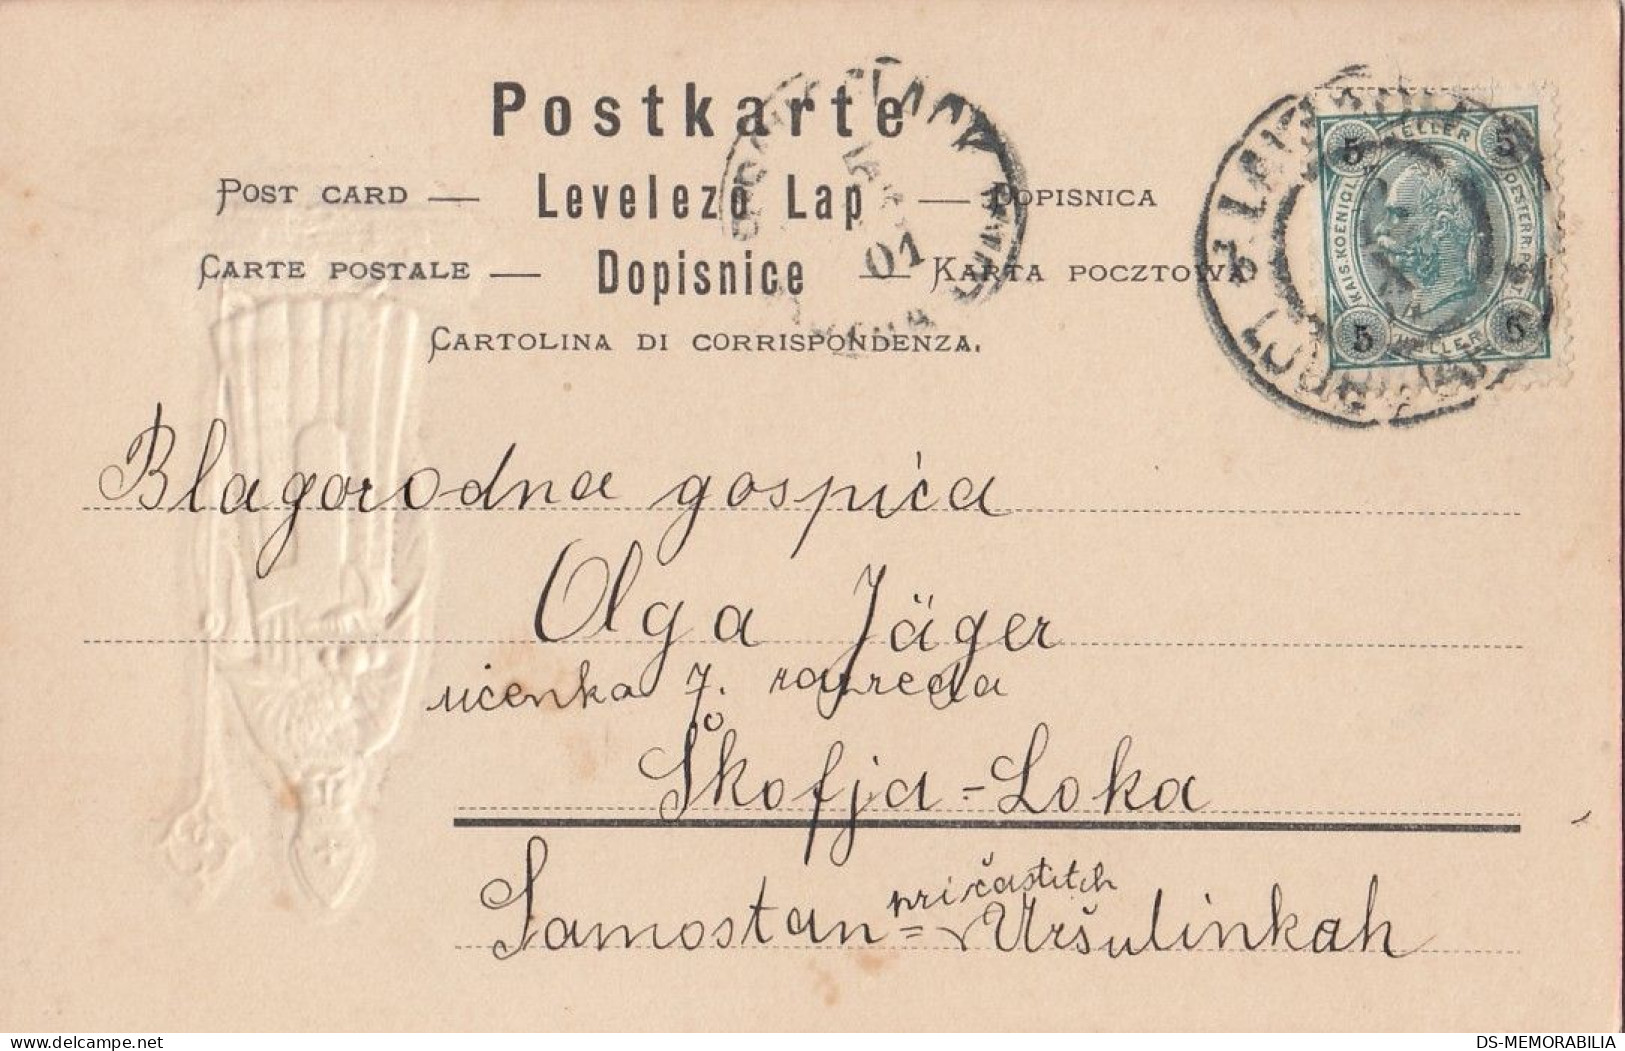 Postkarte
POST CARD — Levelező Lap — DOPISNICA
CARTE POSTALE — Dopisnice — KARTA POCZTOWA
CARTOLINA DI CORRISPONDENZA.
01
5 HELLER 5
KAIS. KOENIGL. OESTERR. POST
5 HELLER 5
Blagorodna gospića
Olga Jäger
učenka 7. razreda
Škofja-Loka
pričastitih
Samostan = Uršulinkah
DS-MEMORABILIA